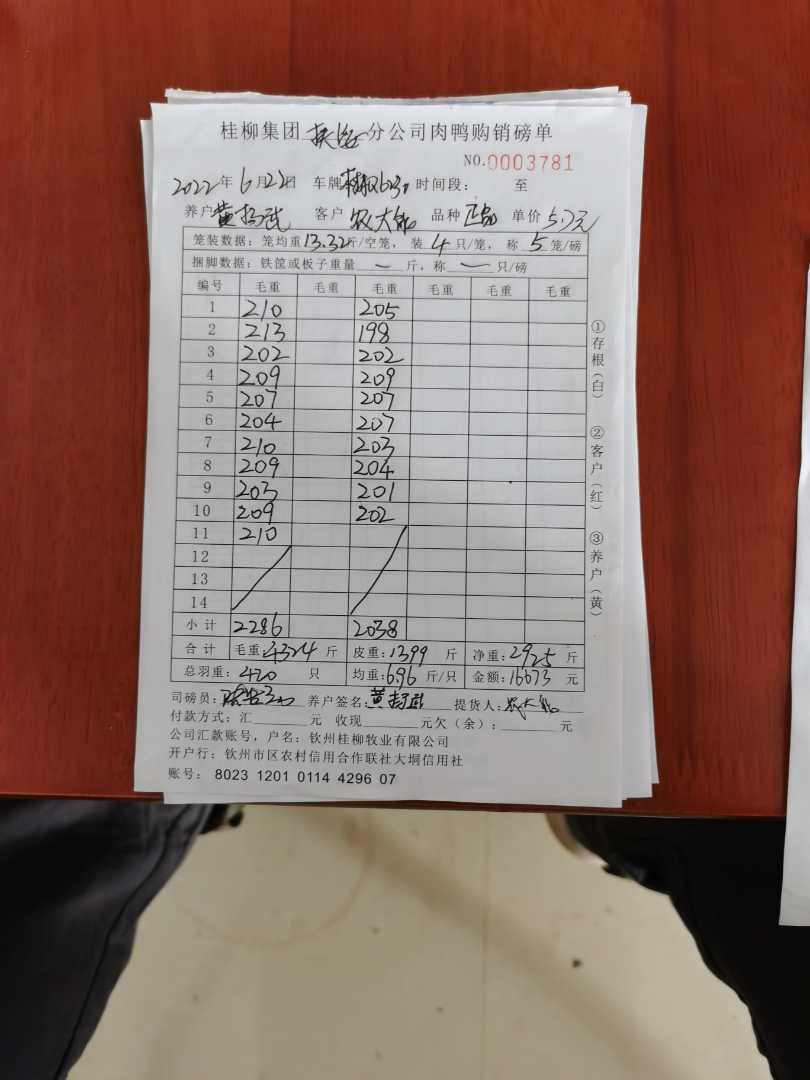 桂柳集团 分公司肉鸭购销磅单
NO.0003781
2022年6月22日 车牌 时间段: 至
养户 客户 农大 品种 正品 单价 5.7元
笼装数据: 笼均重13.32斤/空笼, 装4只/笼, 称5笼/磅
捆脚数据: 铁筐或板子重量 — 斤, 称 — 只/磅
编号 毛重 毛重 毛重 毛重 毛重 毛重
1 210 205
2 213 198
3 202 202
4 209 209
5 207 207
6 204 207
7 210 203
8 209 204
9 203 201
10 209 202
11 210
12
13
14
小计 2286 2038
合计 毛重:4324斤 皮重:1399斤 净重:2925斤
总羽重:420只 均重:6.96斤/只 金额:16673元
司磅员: 养户签名: 提货人: 农大
付款方式: 汇 元 收现 元欠(余): 元
公司汇款账号, 户名: 钦州桂柳牧业有限公司
开户行: 钦州市区农村信用合作联社大垌信用社
账号: 8023 1201 0114 4296 07
①存根(白) ②客户(红) ③养户(黄)